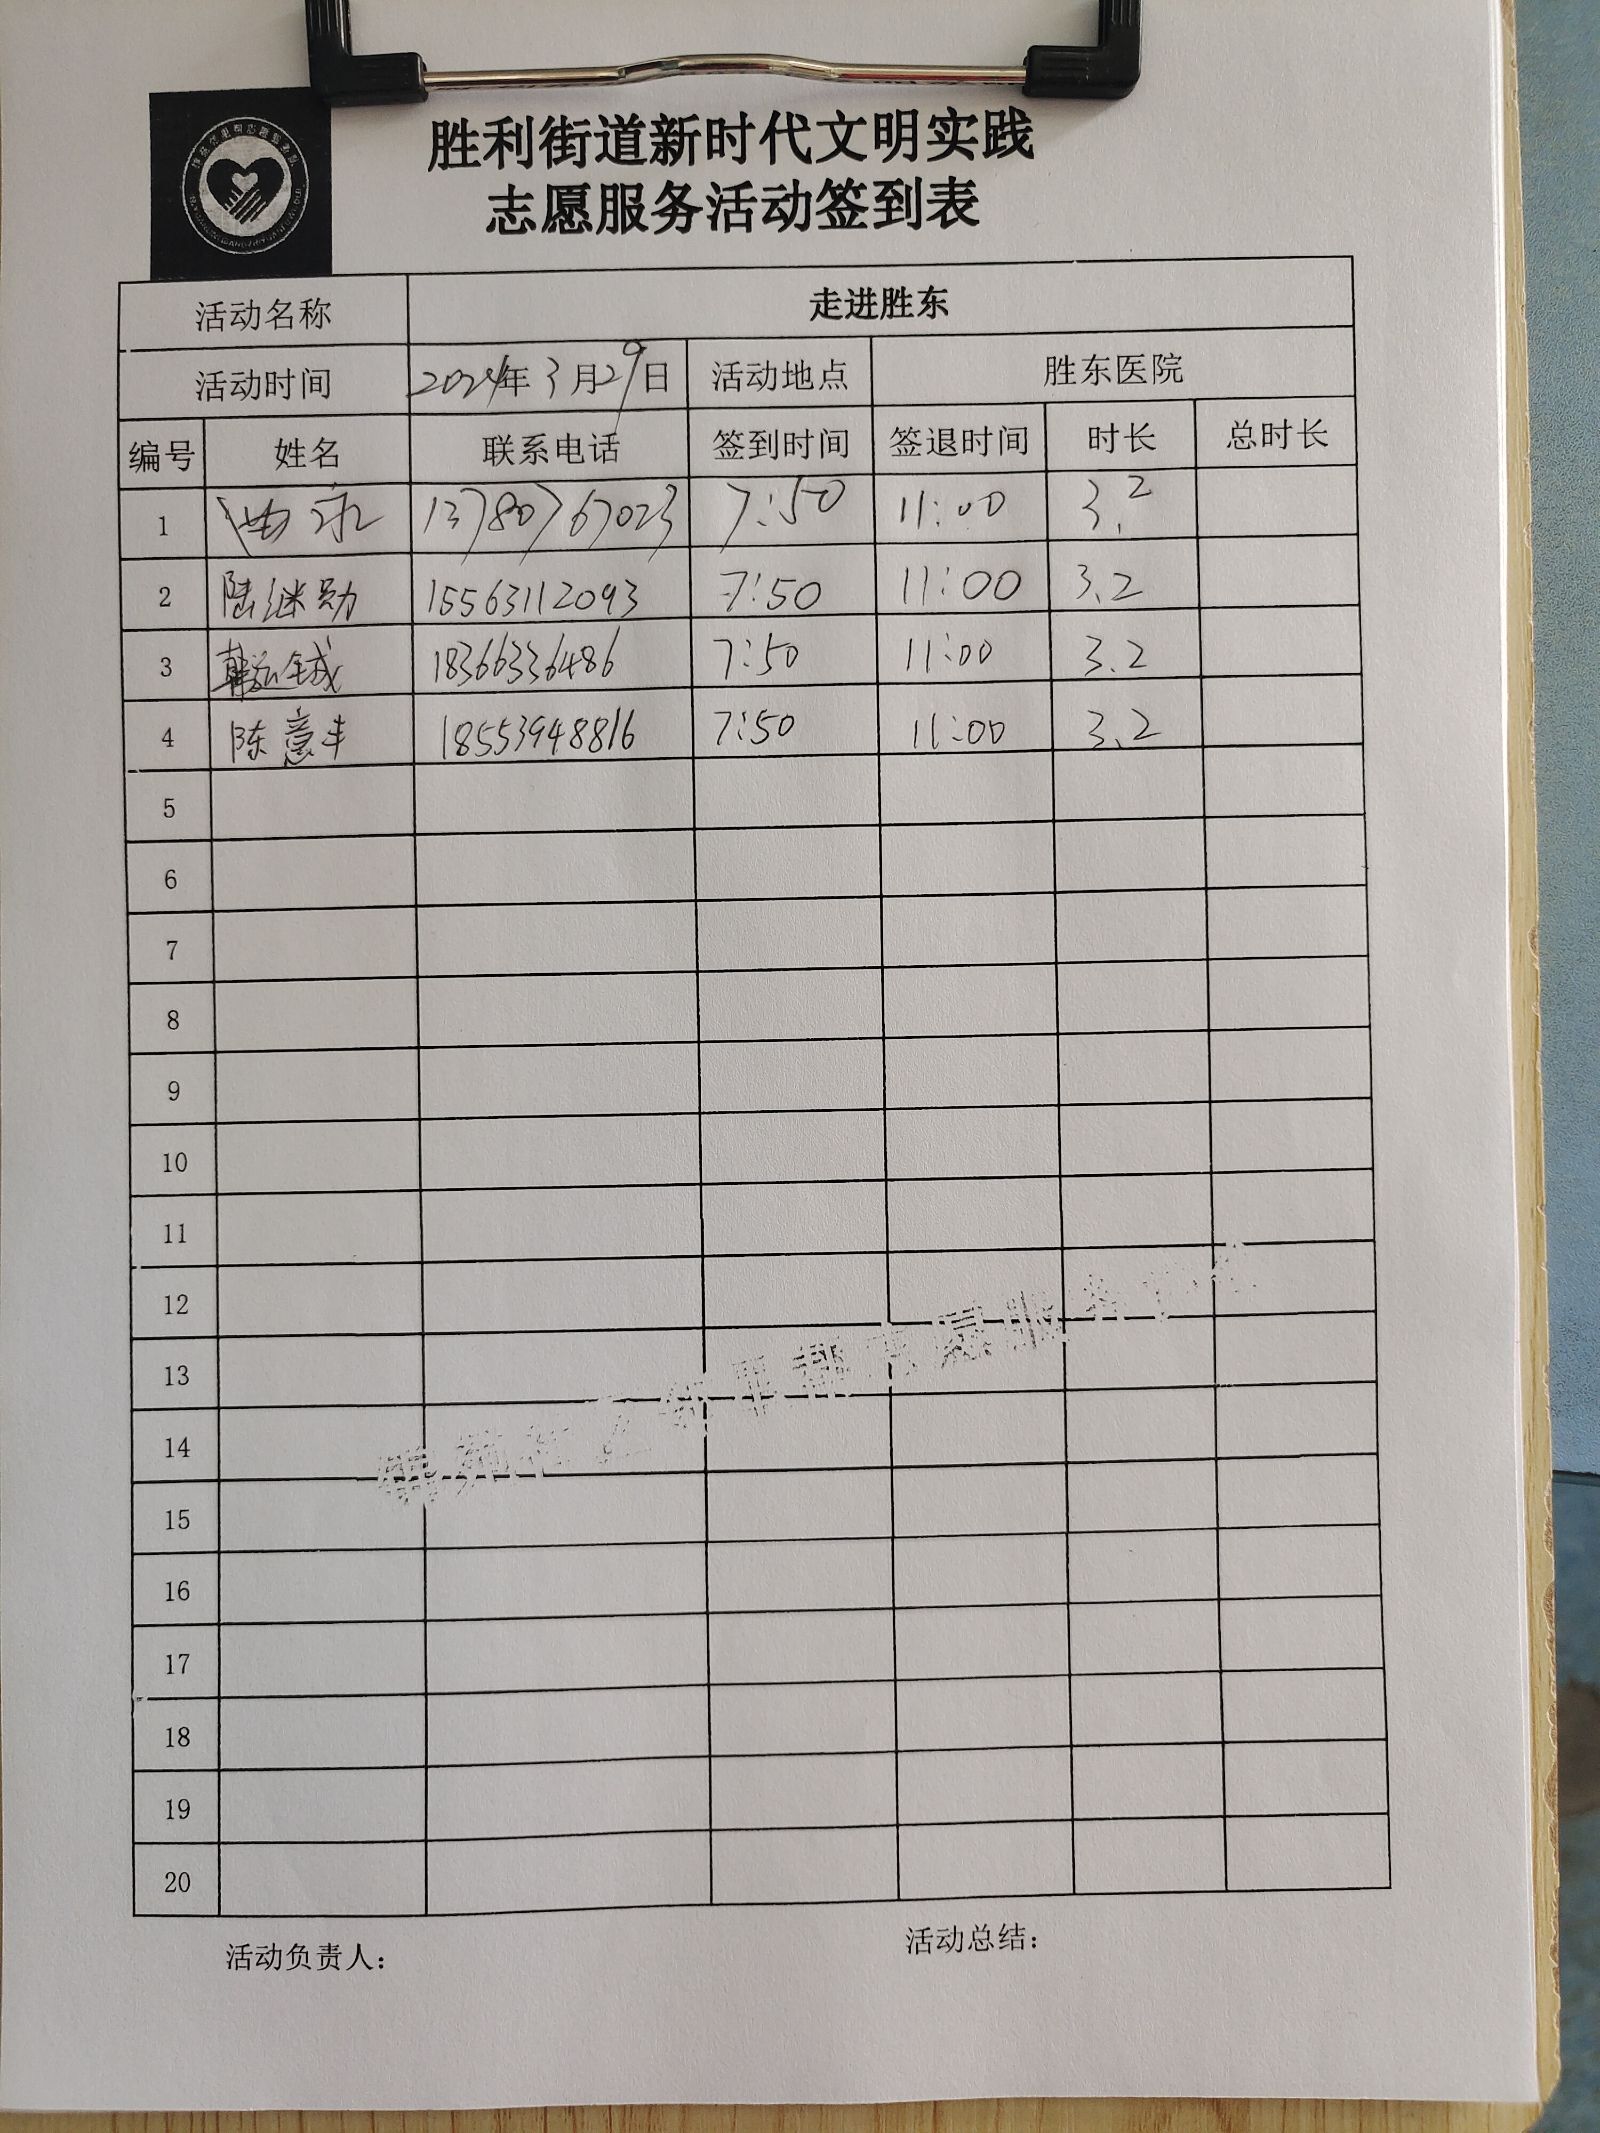 胜利街道新时代文明实践
志愿服务活动签到表
活动名称 走进胜东
活动时间 2024年3月29日 活动地点 胜东医院
编号 姓名 联系电话 签到时间 签退时间 时长 总时长
1 曲永 13780767023 7:50 11:00 3.2
2 陆继勋 15563112093 7:50 11:00 3.2
3 18366336486 7:50 11:00 3.2
4 陈意丰 18553948816 7:50 11:00 3.2
5
6
7
8
9
10
11
12
13
14
15
16
17
18
19
20
活动负责人： 活动总结：